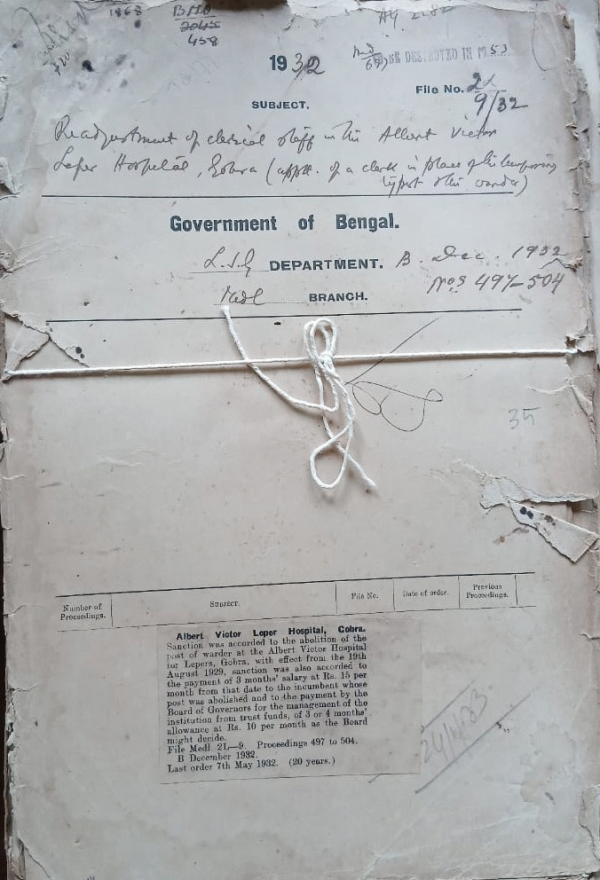 1868
B
2045
458
1932
BE DESTROYED IN M 53
File No. 2L
9/32
SUBJECT.
Readjustment of clerical staff in the Albert Victor
Leper Hospital, Gobra (apptt. of a clerk in place of the temporary
typist & the warder)
Government of Bengal.
L.S.G DEPARTMENT. B. Dec. 1932
Medl BRANCH. Nos 497-504
35
Number of Proceedings.
SUBJECT.
File No.
Date of order.
Previous Proceedings.
Albert Victor Leper Hospital, Gobra.
Sanction was accorded to the abolition of the
post of warder at the Albert Victor Hospital
for Lepers, Gobra, with effect from the 19th
August 1929, sanction was also accorded to
the payment of 3 months' salary at Rs. 15 per
month from that date to the incumbent whose
post was abolished and to the payment by the
Board of Governors for the management of the
institution from trust funds, of 3 or 4 months'
allowance at Rs. 10 per month as the Board
might decide.
File Medl. 2L—9. Proceedings 497 to 504.
B December 1932.
Last order 7th May 1932. (20 years.)